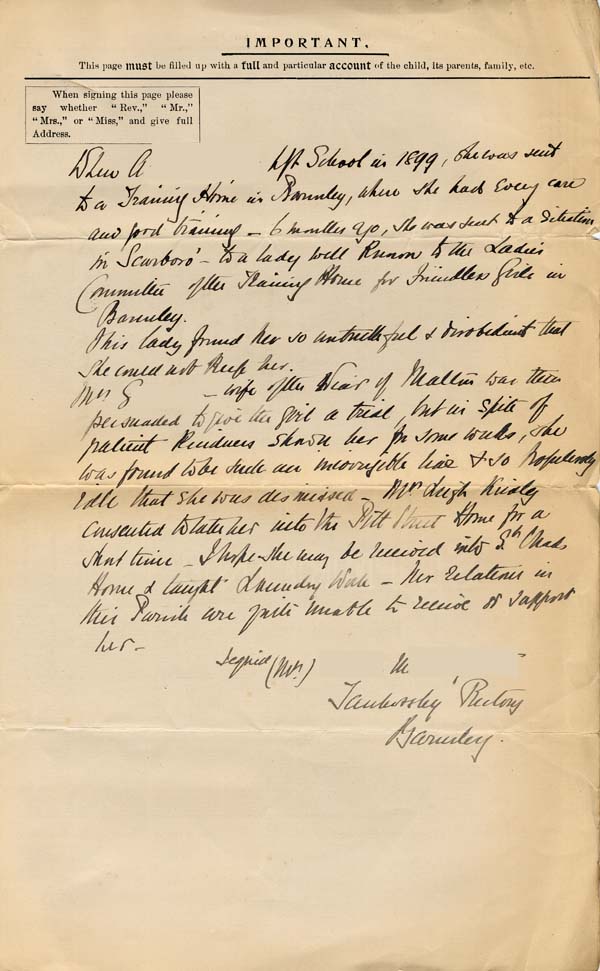 IMPORTANT.
This page must be filled up with a full and particular account of the child, its parents, family, etc.
When signing this page please
say whether "Rev.," "Mr.,"
"Mrs.," or "Miss," and give full
Address.
A left School in 1899, she was sent
to a Training Home in Barnsley, where she had every care
and good training – 6 months ago, she was sent to a situation
in Scarboro' – to a lady well known to the Ladies
Committee of the Training Home for Friendless Girls in
Barnsley.
This lady found her so untruthful & disobedient that
she could not keep her.
Mrs G – wife of the Vicar of Malton was then
persuaded to give the girl a trial, but in spite of
patient kindness shown her for some weeks, she
was found to be such an incorrigible liar & so hopelessly
idle that she was dismissed – Mrs Leigh
consented to take her into the Pitt Street Home for a
short time – I hope she may be received into St Chads
Home & taught Laundry Work – Her relations in
this Parish are quite unable to receive or support
her –
Signed (Mrs) M
Tankersley Rectory
Barnsley.